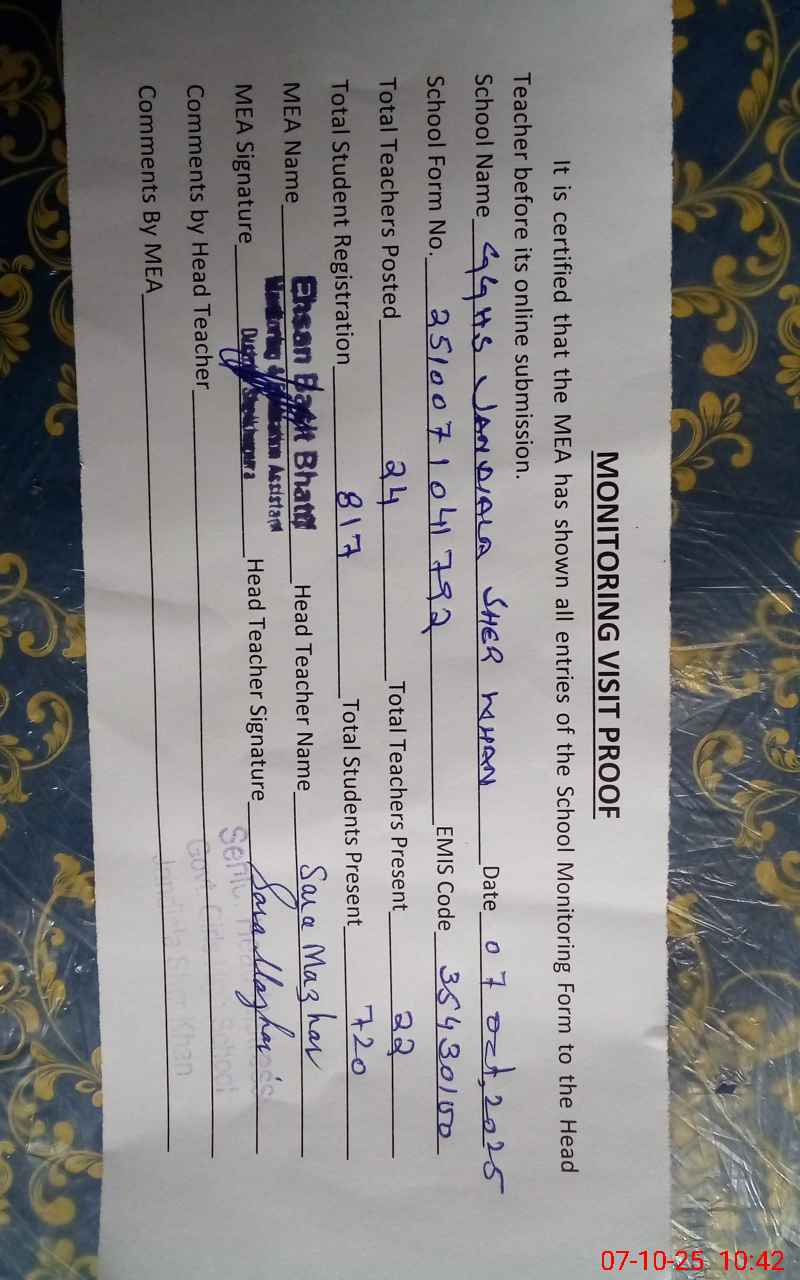 MONITORING VISIT PROOF
It is certified that the MEA has shown all entries of the School Monitoring Form to the Head
Teacher before its online submission.
School Name GGHS JANDIALA SHER KHAN Date 07 Oct, 2025
School Form No. 2510071041792 EMIS Code 35430100
Total Teachers Posted 24 Total Teachers Present 22
Total Student Registration 817 Total Students Present 720
MEA Name Ehsan Bhatti Head Teacher Name Sara Mazhar
Monitoring Assistant
MEA Signature Head Teacher Signature Sara Mazhar
Comments by Head Teacher
Govt. Girls School
Comments By MEA
Jandiala Sher Khan
07-10-25 10:42